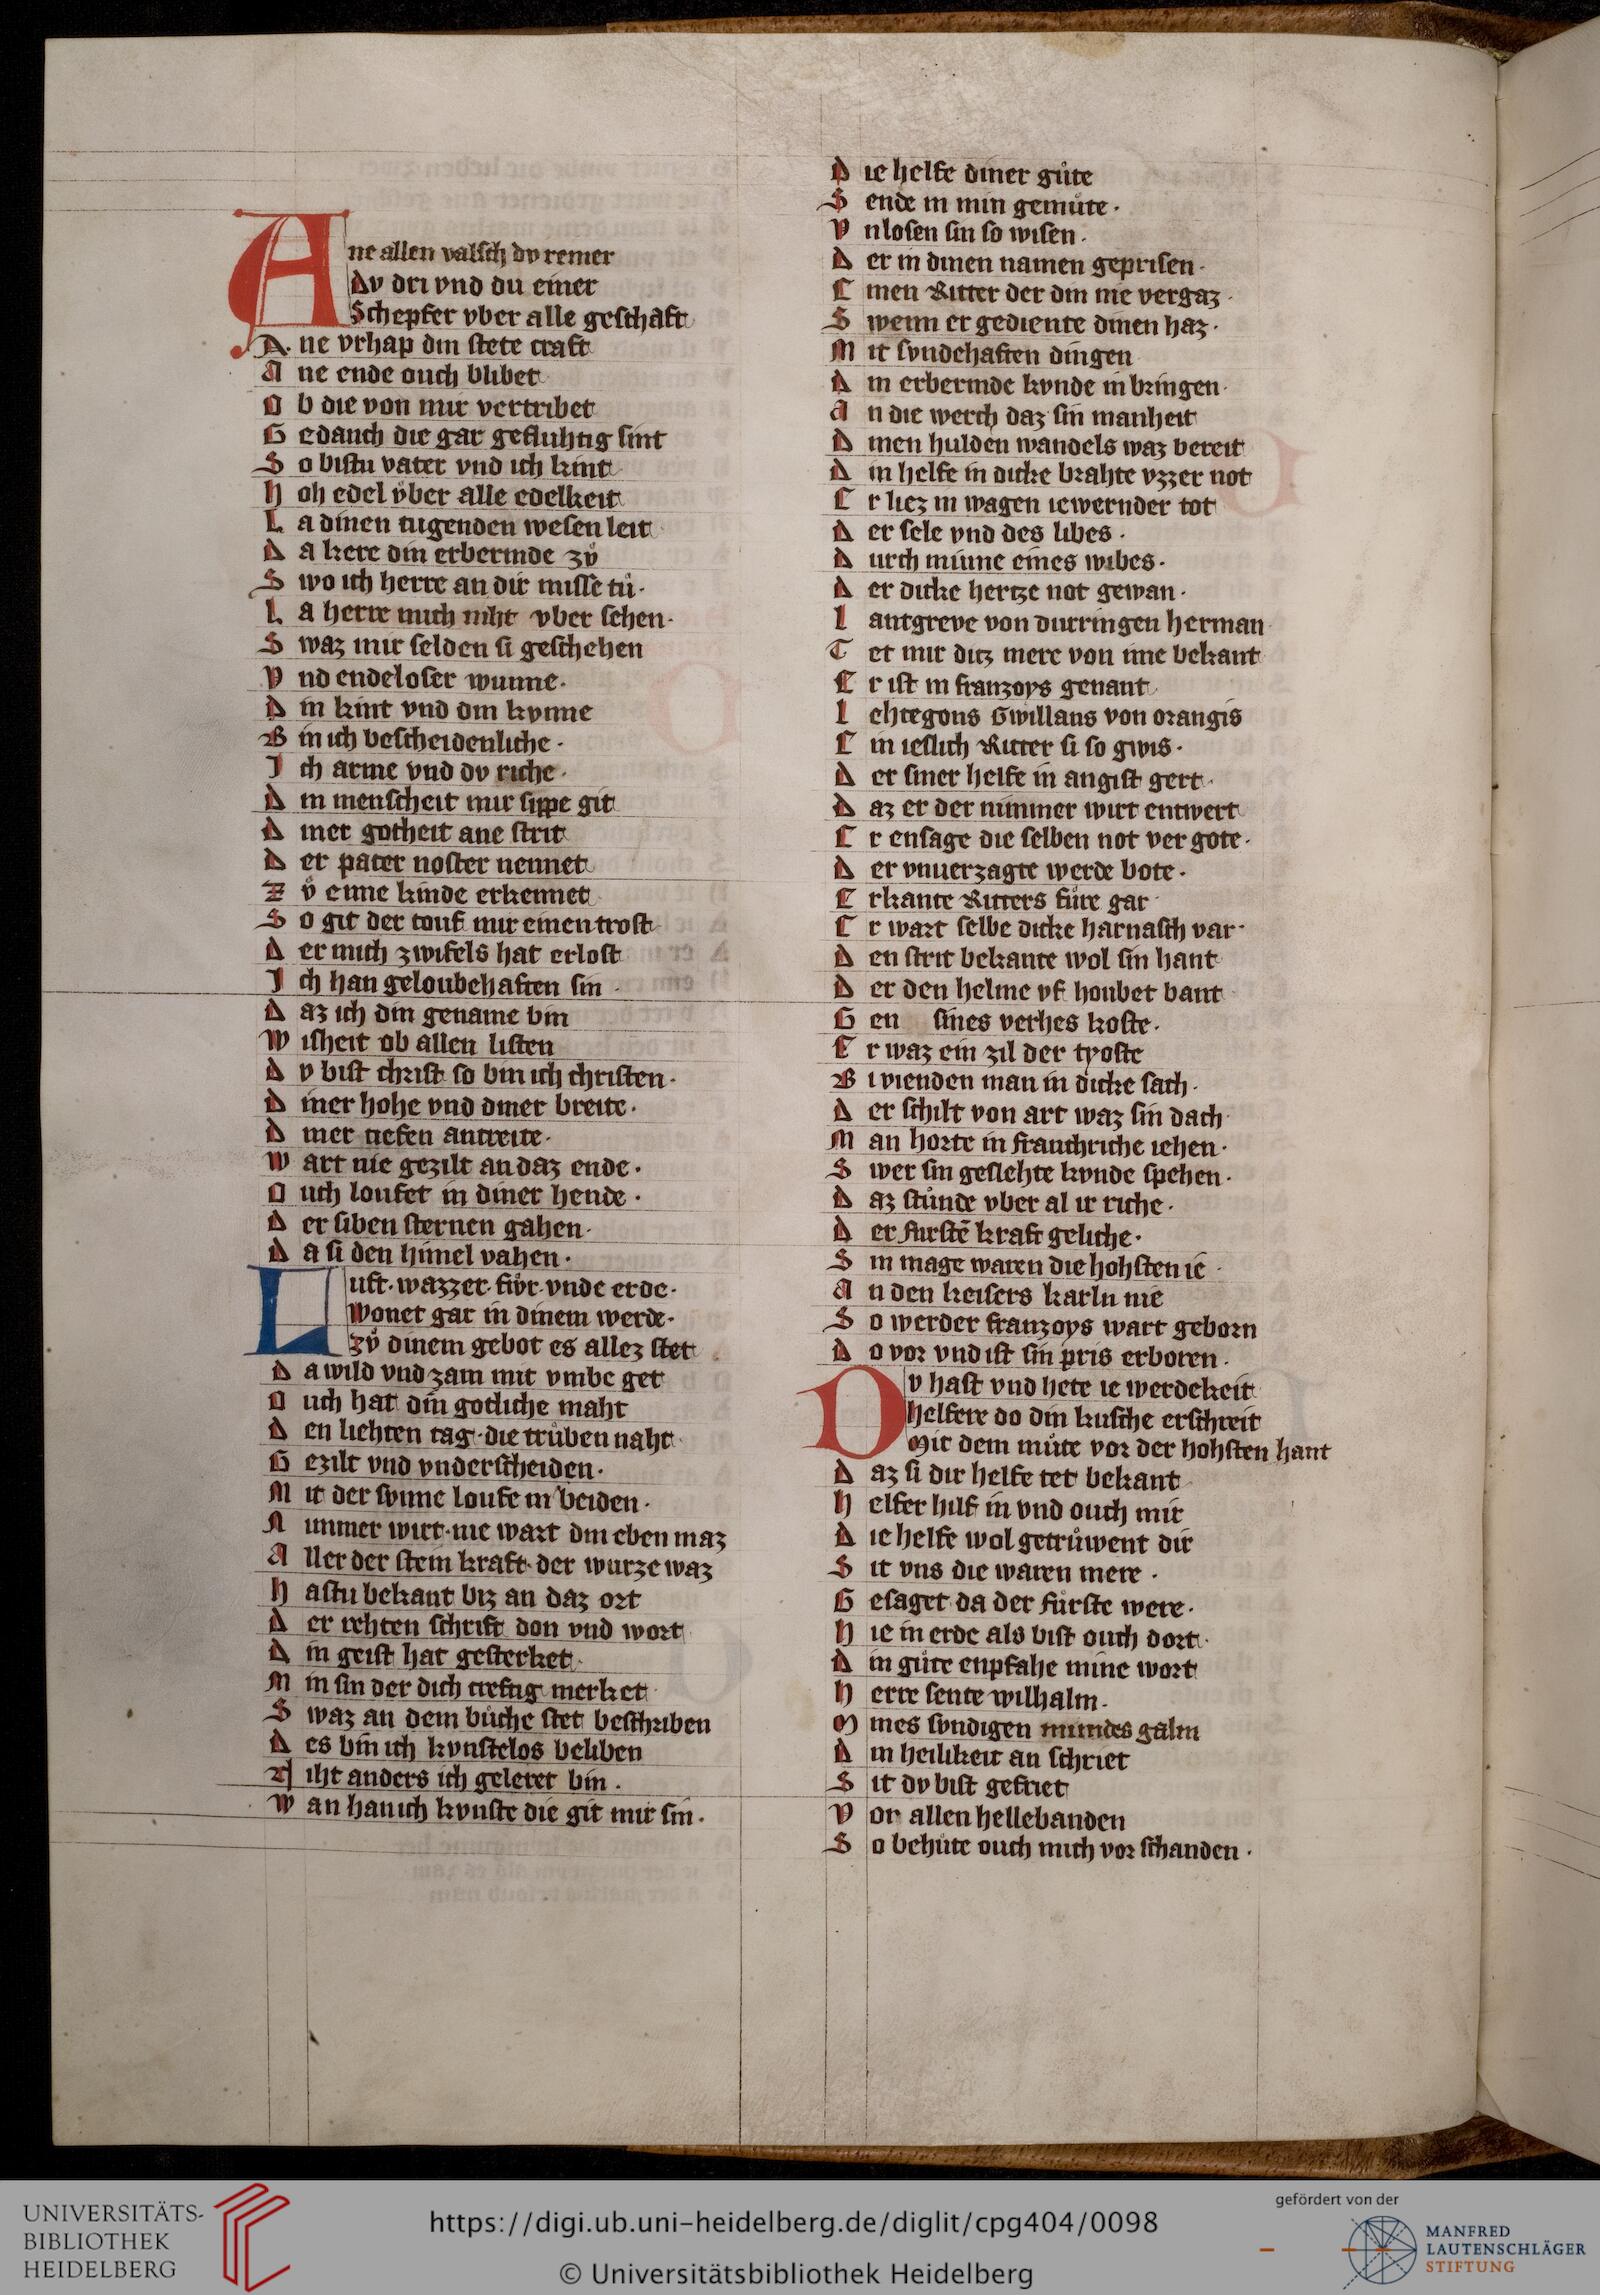 Ane allen valsch dv reiner
Dv dri vnd du einer
Schepfer vber alle geschaft
Ane vrhap din stete craft
Ane ende ouch blibet
Ob die von mir vertribet
Gedanch die gar gefluhtig sint
So bistu vater vnd ich kint
Hoh edel vͦber alle edelkeit
La dinen tugenden wesen leit
Da kere din erbermde zvͦ
Swo ich herre an dir misse tuͦ·
La herre mich niht vber sehen·
Swaz mir selden si geschehen
Vnd endeloser wunne·
Din kint vnd din kvnne
Bin ich bescheidenliche·
Ich arme vnd dv riche·
Din menscheit mir sippe git
Diner gotheit ane strit
Der pater noster nennet
Zvͦ eime kinde erkennet
So git der touf mir einen trost
Der mich zwifels hat erlost
Ich han geloubehaften sin·
Daz ich din gename bin
Wisheit ob allen listen
Dv bist christ so bin ich christen·
Diner hohe vnd diner breite·
Diner tiefen antreite·
Wart nie gezilt an daz ende·
Ouch loufet in diner hende·
Der siben sternen gahen·
Da si den himel vahen·
Luft·wazzer·fivͦr·vnde erde·
Wonet gar in dinem werde·
Zvͦ dinem gebot es allez stet
Da wild vnd zam mit vmbe get
Ouch hat din gotliche maht
Den liehten tag·die truͦben naht
Gezilt vnd vnderscheiden·
Mit der svnne loufe in beiden·
Nimmer wirt·nie wart din eben maz
Aller der stein kraft·der wurze waz
Hastu bekant biz an daz ort
Der rehten schrift don vnd wort
Din geist hat gesterket
Min sin der dich creftig merket
Swaz an dem buͦche stet beschriben
Des bin ich kvnstelos beliben
Niht anders ich geleret bin·
Wan han ich kvnste die git mir sin·
Die helfe diner guͦte
Sende in min gemuͦte·
Vnlosen sin so wisen·
Der in dinen namen geprisen·
Einen Ritter der din nie vergaz·
Swenn er gediente dinen haz·
Mit svndehaften dingen
Din erbermde kvnde in bringen·
An die werch daz sin manheit
Dinen hulden wandels waz bereit
Din helfe in dicke brahte vzzer not
Er liez in wagen iewernder tot
Der sele vnd des libes·
Durch minne eines wibes·
Der dicke hertze not gewan·
Lantgreve von durringen herman
Tet mir ditz mere von ime bekant
Er ist in franzoys genant
Lehtegons Gwillans von orangis
Ein ieslich Ritter si so gwis·
Der siner helfe in angist gert
Daz er der nimmer wirt entwert
Er ensage die selben not ver gote·
Der vnuerzagte werde bote·
Erkante Ritters fuͦre gar
Er wart selbe dicke harnasch var·
Den strit bekante wol sin hant
Der den helme vf houbet bant
Gen sines verhes koste·
Er waz ein zil der tyoste
Bi vienden man in dicke sach·
Der schilt von art waz sin dach
Man horte in franchriche iehen·
Swer sin geslehte kvnde spehen·
Daz stuͦnde vber al ir riche·
Der furstē kraft geliche·
Sin mage waren die hohsten ie
An den keisers karln nie
So werder franzoys wart geborn
Do vor vnd ist sin pris erboren·
Dv hast vnd hete ie werdekeit
Helfere do din kusche erschreit
Mit dem muͦte vor der hohsten hant
Daz si dir helfe tet bekant
Helfer hilf in vnd ouch mir
Die helfe wol getruͦwent dir
Sit vns die waren mere·
Gesaget da der fuͦrste were·
Hie in erde als bist ouch dort·
Din guͦte enpfahe mine wort
Herre sente wilhalm·
Mines svndigen mundes galm
Din heilikeit an schriet
Sit dv bist gefriet
Vor allen hellebanden
So behuͦte ouch mich vor schanden·
UNIVERSITÄTS-
BIBLIOTHEK
HEIDELBERG
https://digi.ub.uni-heidelberg.de/diglit/cpg404/0098
© Universitätsbibliothek Heidelberg
gefördert von der
MANFRED
LAUTENSCHLÄGER
STIFTUNG